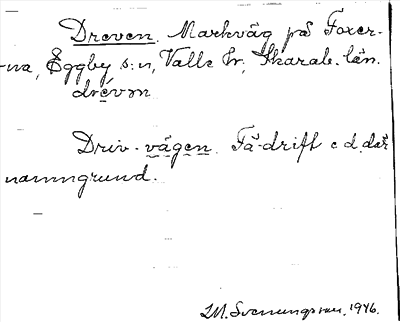 Dreven. Markväg på Foxer-
na, Eggby s:n, Valle hr, Skarab. län.
drévən
Driv-vägen. Fä-drift e d. där
namngrund.
M. Svenungsson, 1946.